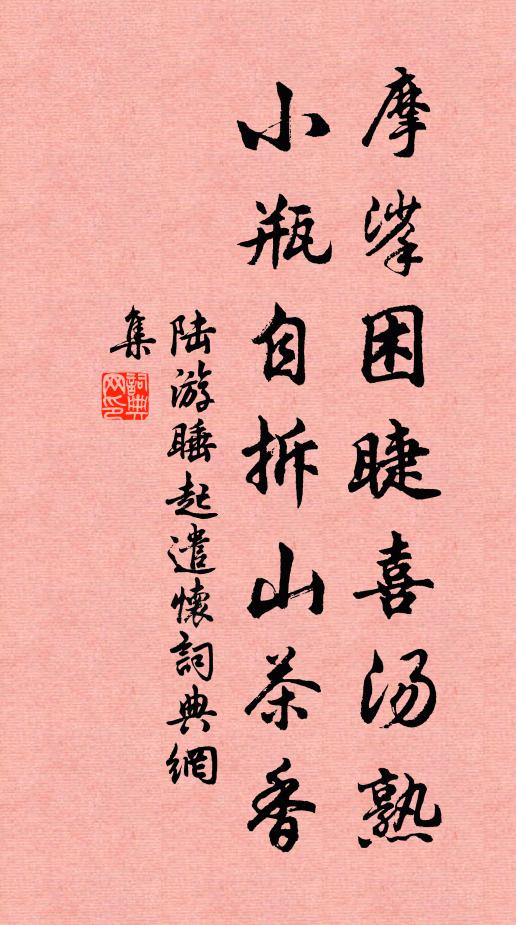 摩挲困睫喜汤熟
小瓶自拆山茶香
陆游睡起遣懷詞典網
集
詞典
网印